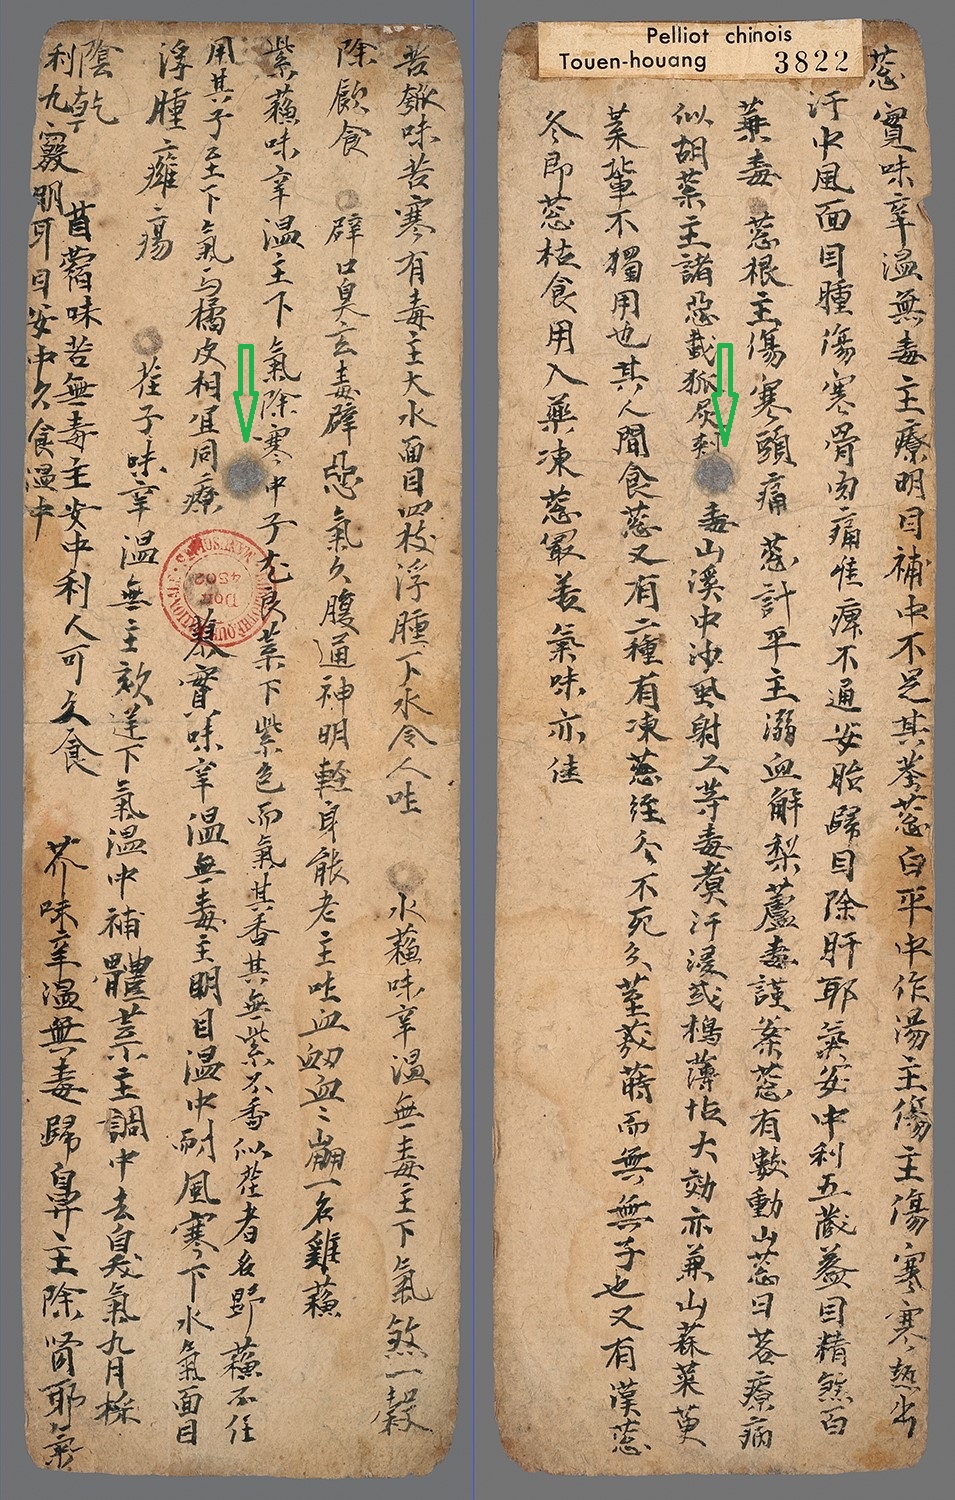 Pelliot chinois
Touen-houang 3822
葱實味辛溫無毒主療明目補中不足其莖葱白平中作湯主傷主傷寒寒熱出
汗中風面目腫傷寒骨肉痛喉痺不通安胎歸目除肝耶氣安中利五藏益目精煞百
藥毒 葱根主傷寒頭痛 葱汁平主溺血解梨蘆毒謹案葱有數動山葱曰茖療病
似胡葉主諸惡 狐尿刺 毒山溪中沙虱射工等毒煑汁浸或搗薄 大効亦兼山蒜菜茰
葉輩不獨用也其人間食葱又有二種有凍葱經冬不死久莖 蒔而無無子也又有漢葱
冬即葱枯食用入藥凍葱最善氣味亦佳
苦瓠味苦寒有毒主大水面目四枝浮腫下水令人吐 水蘇味辛溫無毒主下氣煞一穀
除飲食 辟口臭去毒辟惡氣久腹通神明輕身能老主吐血衂血血崩一名雞蘇
紫蘇味辛溫主下氣除寒中子尤良葉下紫色而氣其香其無紫不香似荏者名野蘇不任
用其子至下氣与橘皮相宜同療 實味辛溫無毒主明目溫中耐風寒下水氣面目
浮腫癰瘍 荏子味辛溫無主欬逆下氣溫中補體葉主調中去臭氣九月採
陰乾 苜蓿味苦無毒主安中利人可久食 芥味辛溫無毒歸鼻主除腎耶氣
利九竅明耳目安中久食溫中
BIBLIOTHÈQUE NATIONALE MANUSCRITS
Don 4502